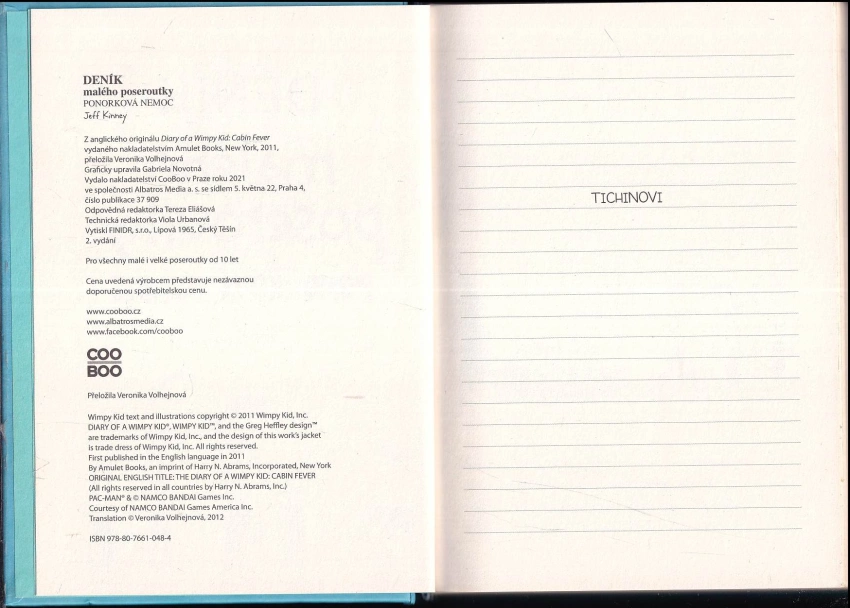 DENÍK
malého poseroutky
PONORKOVÁ NEMOC
Jeff Kinney
Z anglického originálu Diary of a Wimpy Kid: Cabin Fever
vydaného nakladatelstvím Amulet Books, New York, 2011,
přeložila Veronika Volhejnová
Graficky upravila Gabriela Novotná
Vydalo nakladatelství CooBoo v Praze roku 2021
ve společnosti Albatros Media a. s. se sídlem 5. května 22, Praha 4,
číslo publikace 37 909
Odpovědná redaktorka Tereza Eliášová
Technická redaktorka Viola Urbanová
Vytiskl FINIDR, s.r.o., Lípová 1965, Český Těšín
2. vydání
Pro všechny malé i velké poseroutky od 10 let
Cena uvedená výrobcem představuje nezávaznou
doporučenou spotřebitelskou cenu.
www.cooboo.cz
www.albatrosmedia.cz
www.facebook.com/cooboo
COO
BOO
Přeložila Veronika Volhejnová
Wimpy Kid text and illustrations copyright © 2011 Wimpy Kid, Inc.
DIARY OF A WIMPY KID®, WIMPY KID™, and the Greg Heffley design™
are trademarks of Wimpy Kid, Inc., and the design of this work's jacket
is trade dress of Wimpy Kid, Inc. All rights reserved.
First published in the English language in 2011
By Amulet Books, an imprint of Harry N. Abrams, Incorporated, New York
ORIGINAL ENGLISH TITLE: THE DIARY OF A WIMPY KID: CABIN FEVER
(All rights reserved in all countries by Harry N. Abrams, Inc.)
PAC-MAN® & © NAMCO BANDAI Games Inc.
Courtesy of NAMCO BANDAI Games America Inc.
Translation © Veronika Volhejnová, 2012
ISBN 978-80-7661-048-4
TICHINOVI